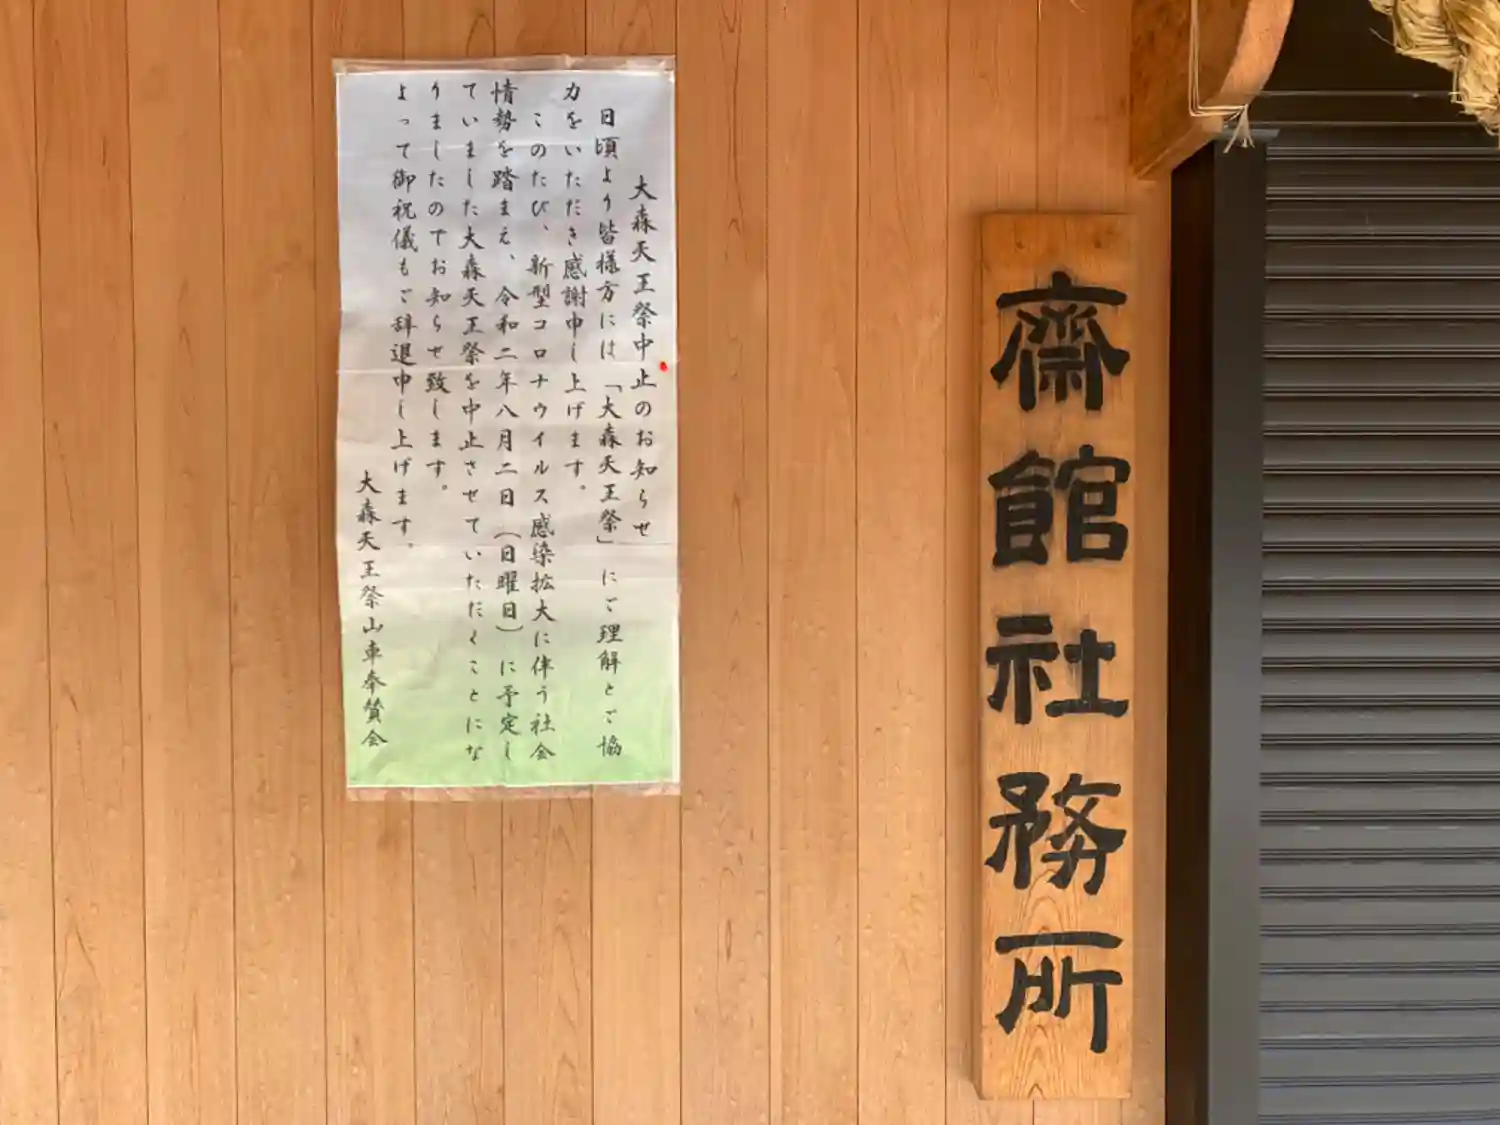 齋館社務所
大森天王祭中止のお知らせ
日頃より皆様方には「大森天王祭」にご理解とご協
力をいただき感謝申し上げます。
このたび、新型コロナウイルス感染拡大に伴う社会
情勢を踏まえ、令和二年八月二日（日曜日）に予定し
ていました大森天王祭を中止させていただくことにな
りましたのでお知らせ致します。
よって御祝儀もご辞退申し上げます。
大森天王祭山車奉賛会